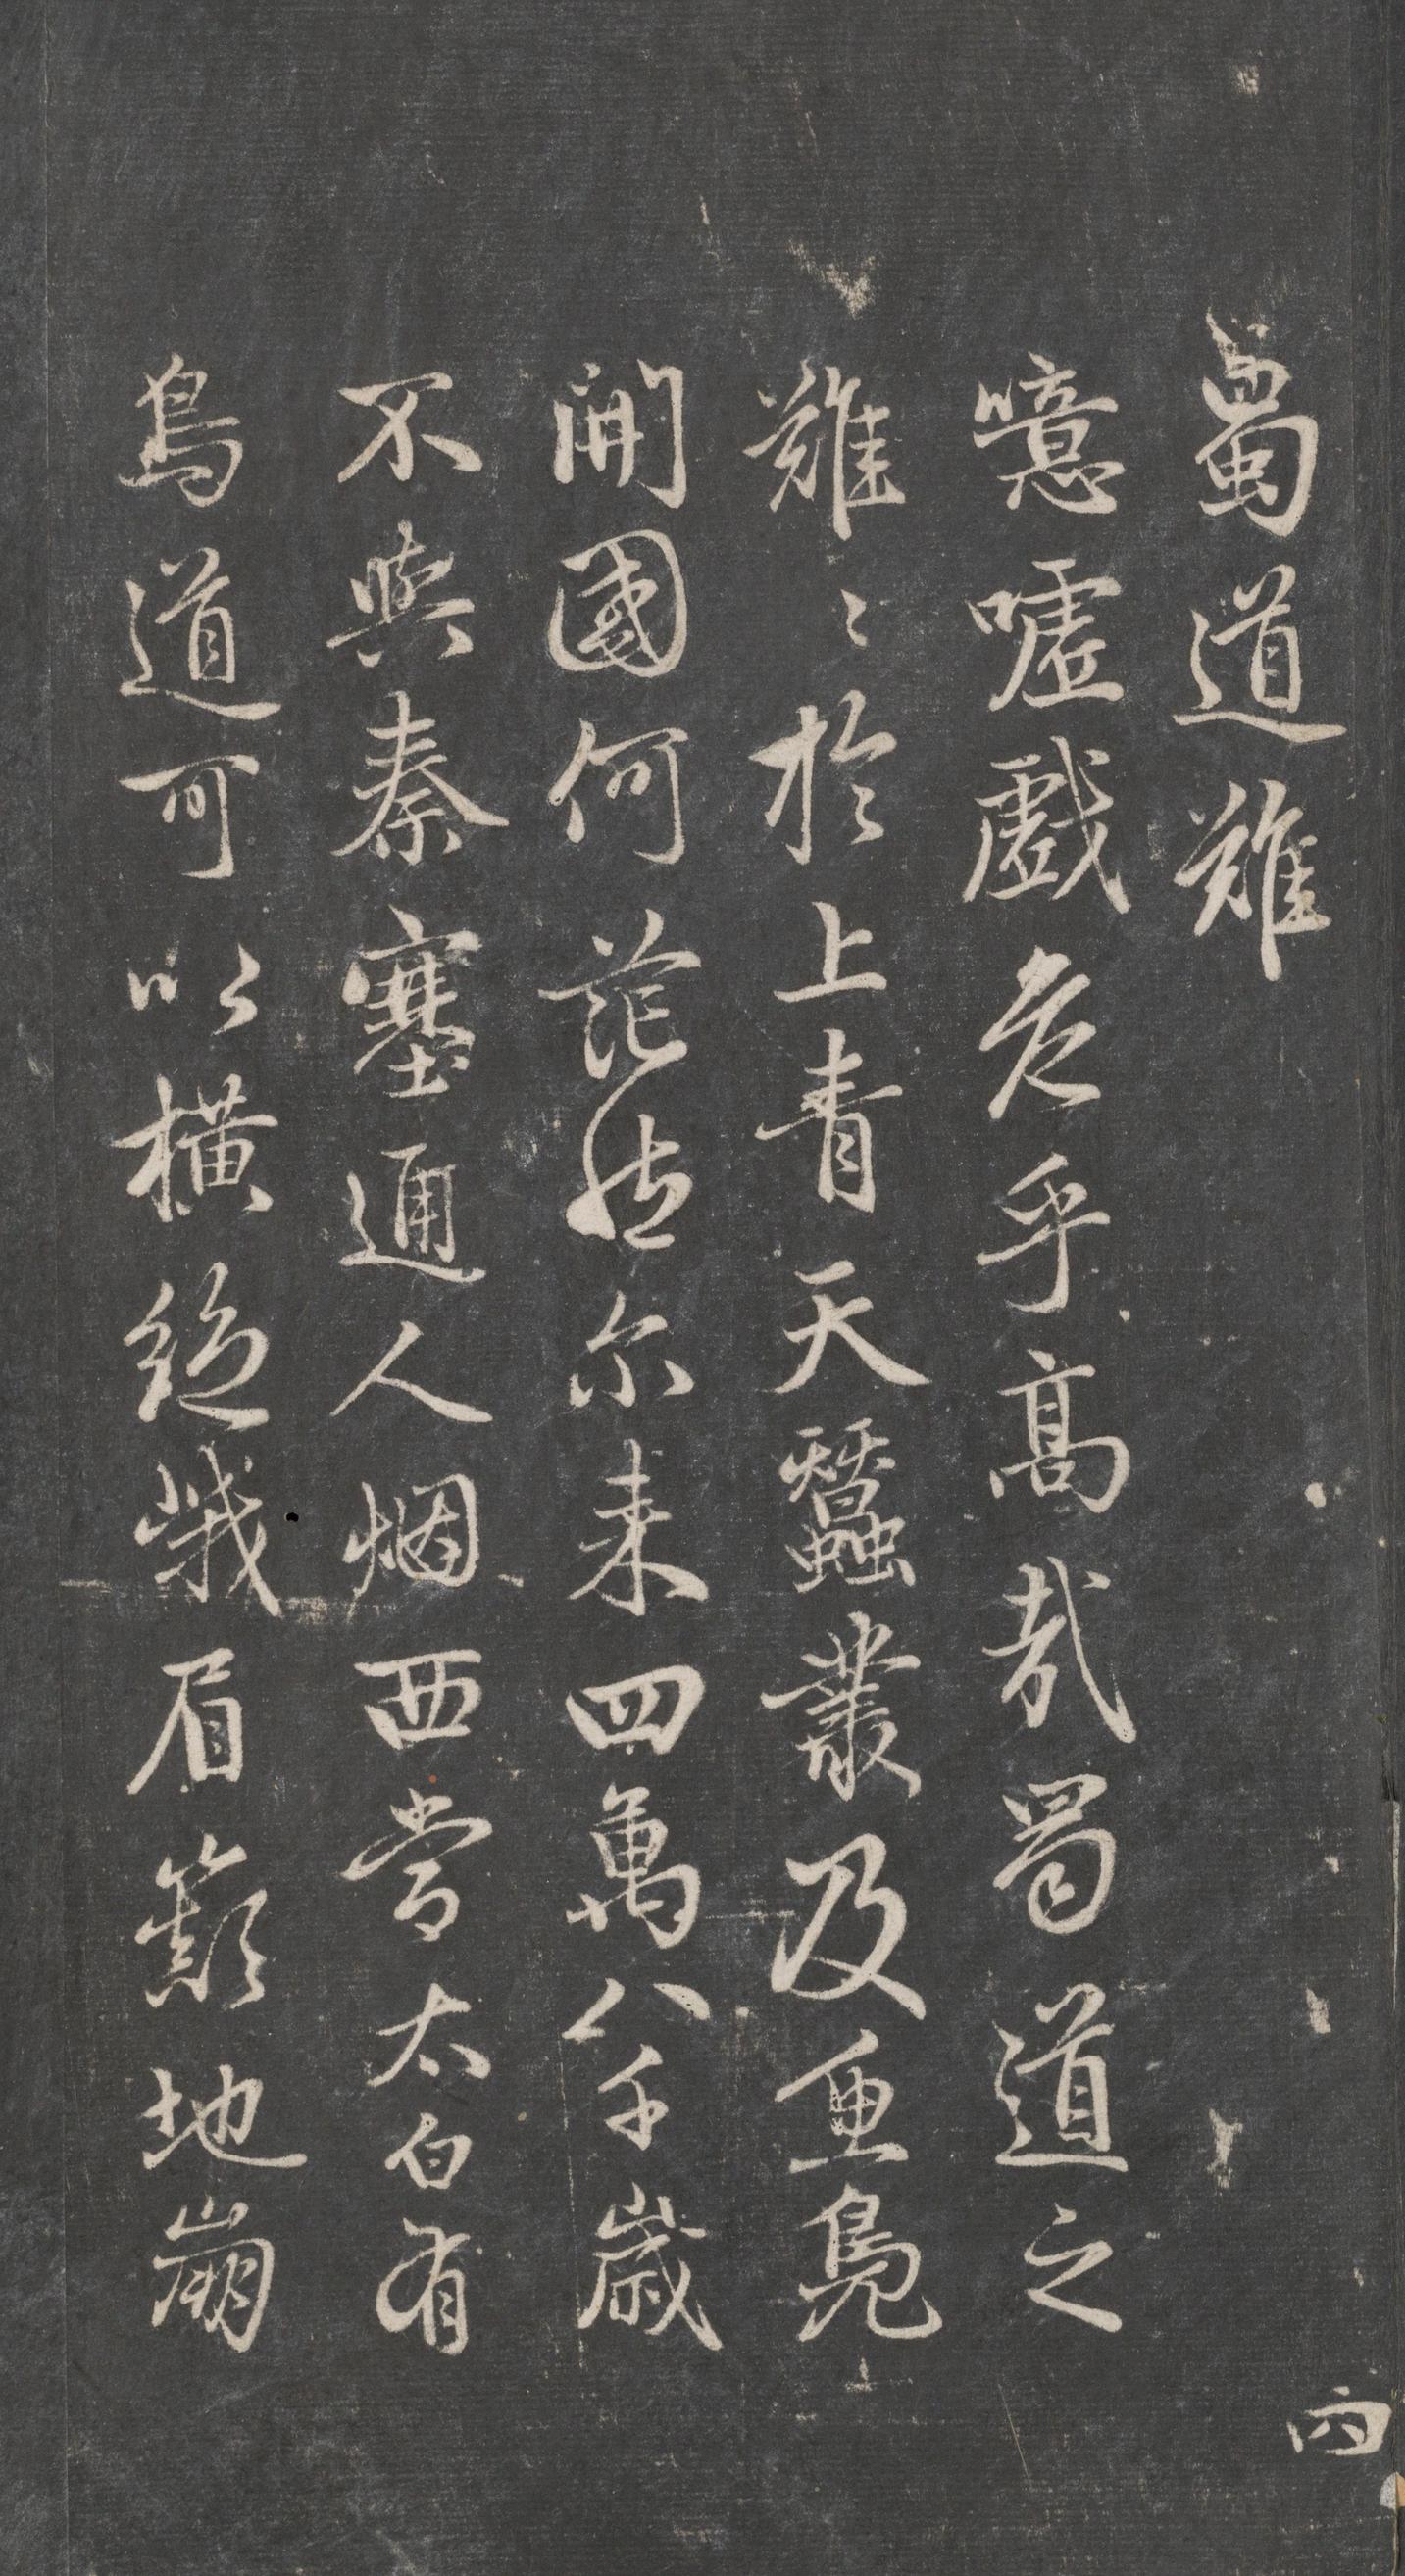 蜀道難
噫嘘戲危乎高哉蜀道之
難〻於上青天蠶叢及魚鳧
開國何茫然尔来四萬八千歲
不與秦塞通人烟西當太白有
鳥道可以橫絕峨眉巔地崩
丙